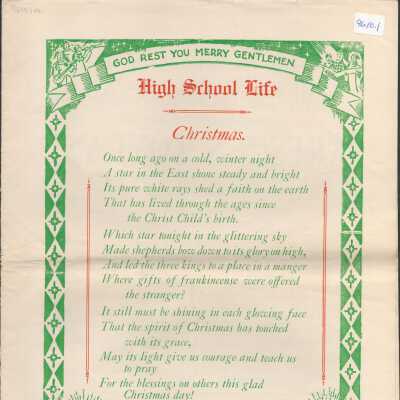 96.10.1
GOD REST YOU MERRY GENTLEMEN
High School Life
Christmas.
Once long ago on a cold, winter night
A star in the East shone steady and bright
Its pure white rays shed a faith on the earth
That has lived through the ages since
the Christ Child's birth.
Which star tonight in the glittering sky
Made shepherds bow down to its glory on high,
And led the three kings to a place in a manger
Where gifts of frankincense were offered
the stranger?
It still must be shining in each glowing face
That the spirit of Christmas has touched
with its grace,
May its light give us courage and teach us
to pray
For the blessings on others this glad
Christmas day!